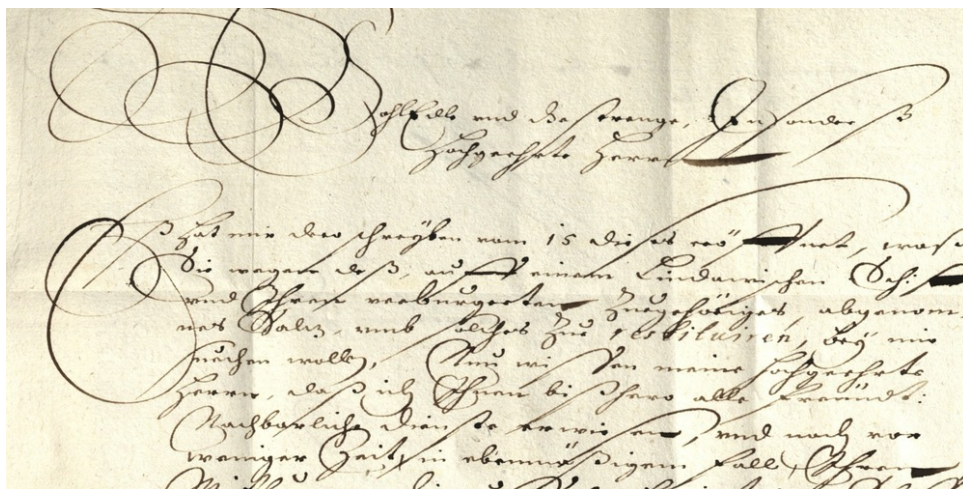 WohlEdle vnd Gestrenge, Insonders
Hochgeehrte Herrn
Eß hat mir dero schreyben vom 15 dieses eröffnet, was
Sie wegen deß, auff einem Lindawischen Schiff
vnd Ihren verburgerten Zuegehöriges, abgenom-
nes Saltz, vmb solches Zue restituiren, bey mir
suchen wollen, Nun wissen meine hochgeehrte
Herrn, daß ich Ihnen bißhero alle freündt:
Nachbarliche dienste erwisen, vnd noch vor
weniger Zeit, in ebenmäßigem fall, Ihren